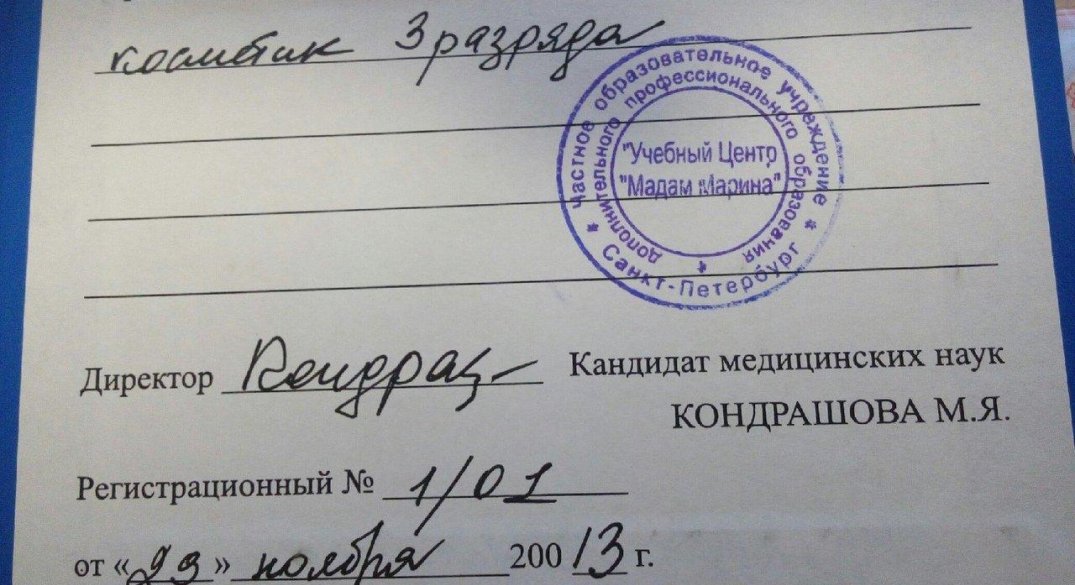 косметик 3 разряда
* Частное образовательное учреждение *
дополнительного профессионального образования
"Учебный Центр
"Мадам Марина"
Санкт-Петербург
Директор Кондраш Кандидат медицинских наук
КОНДРАШОВА М.Я.
Регистрационный № 1/01
от «29» ноября 200 13 г.